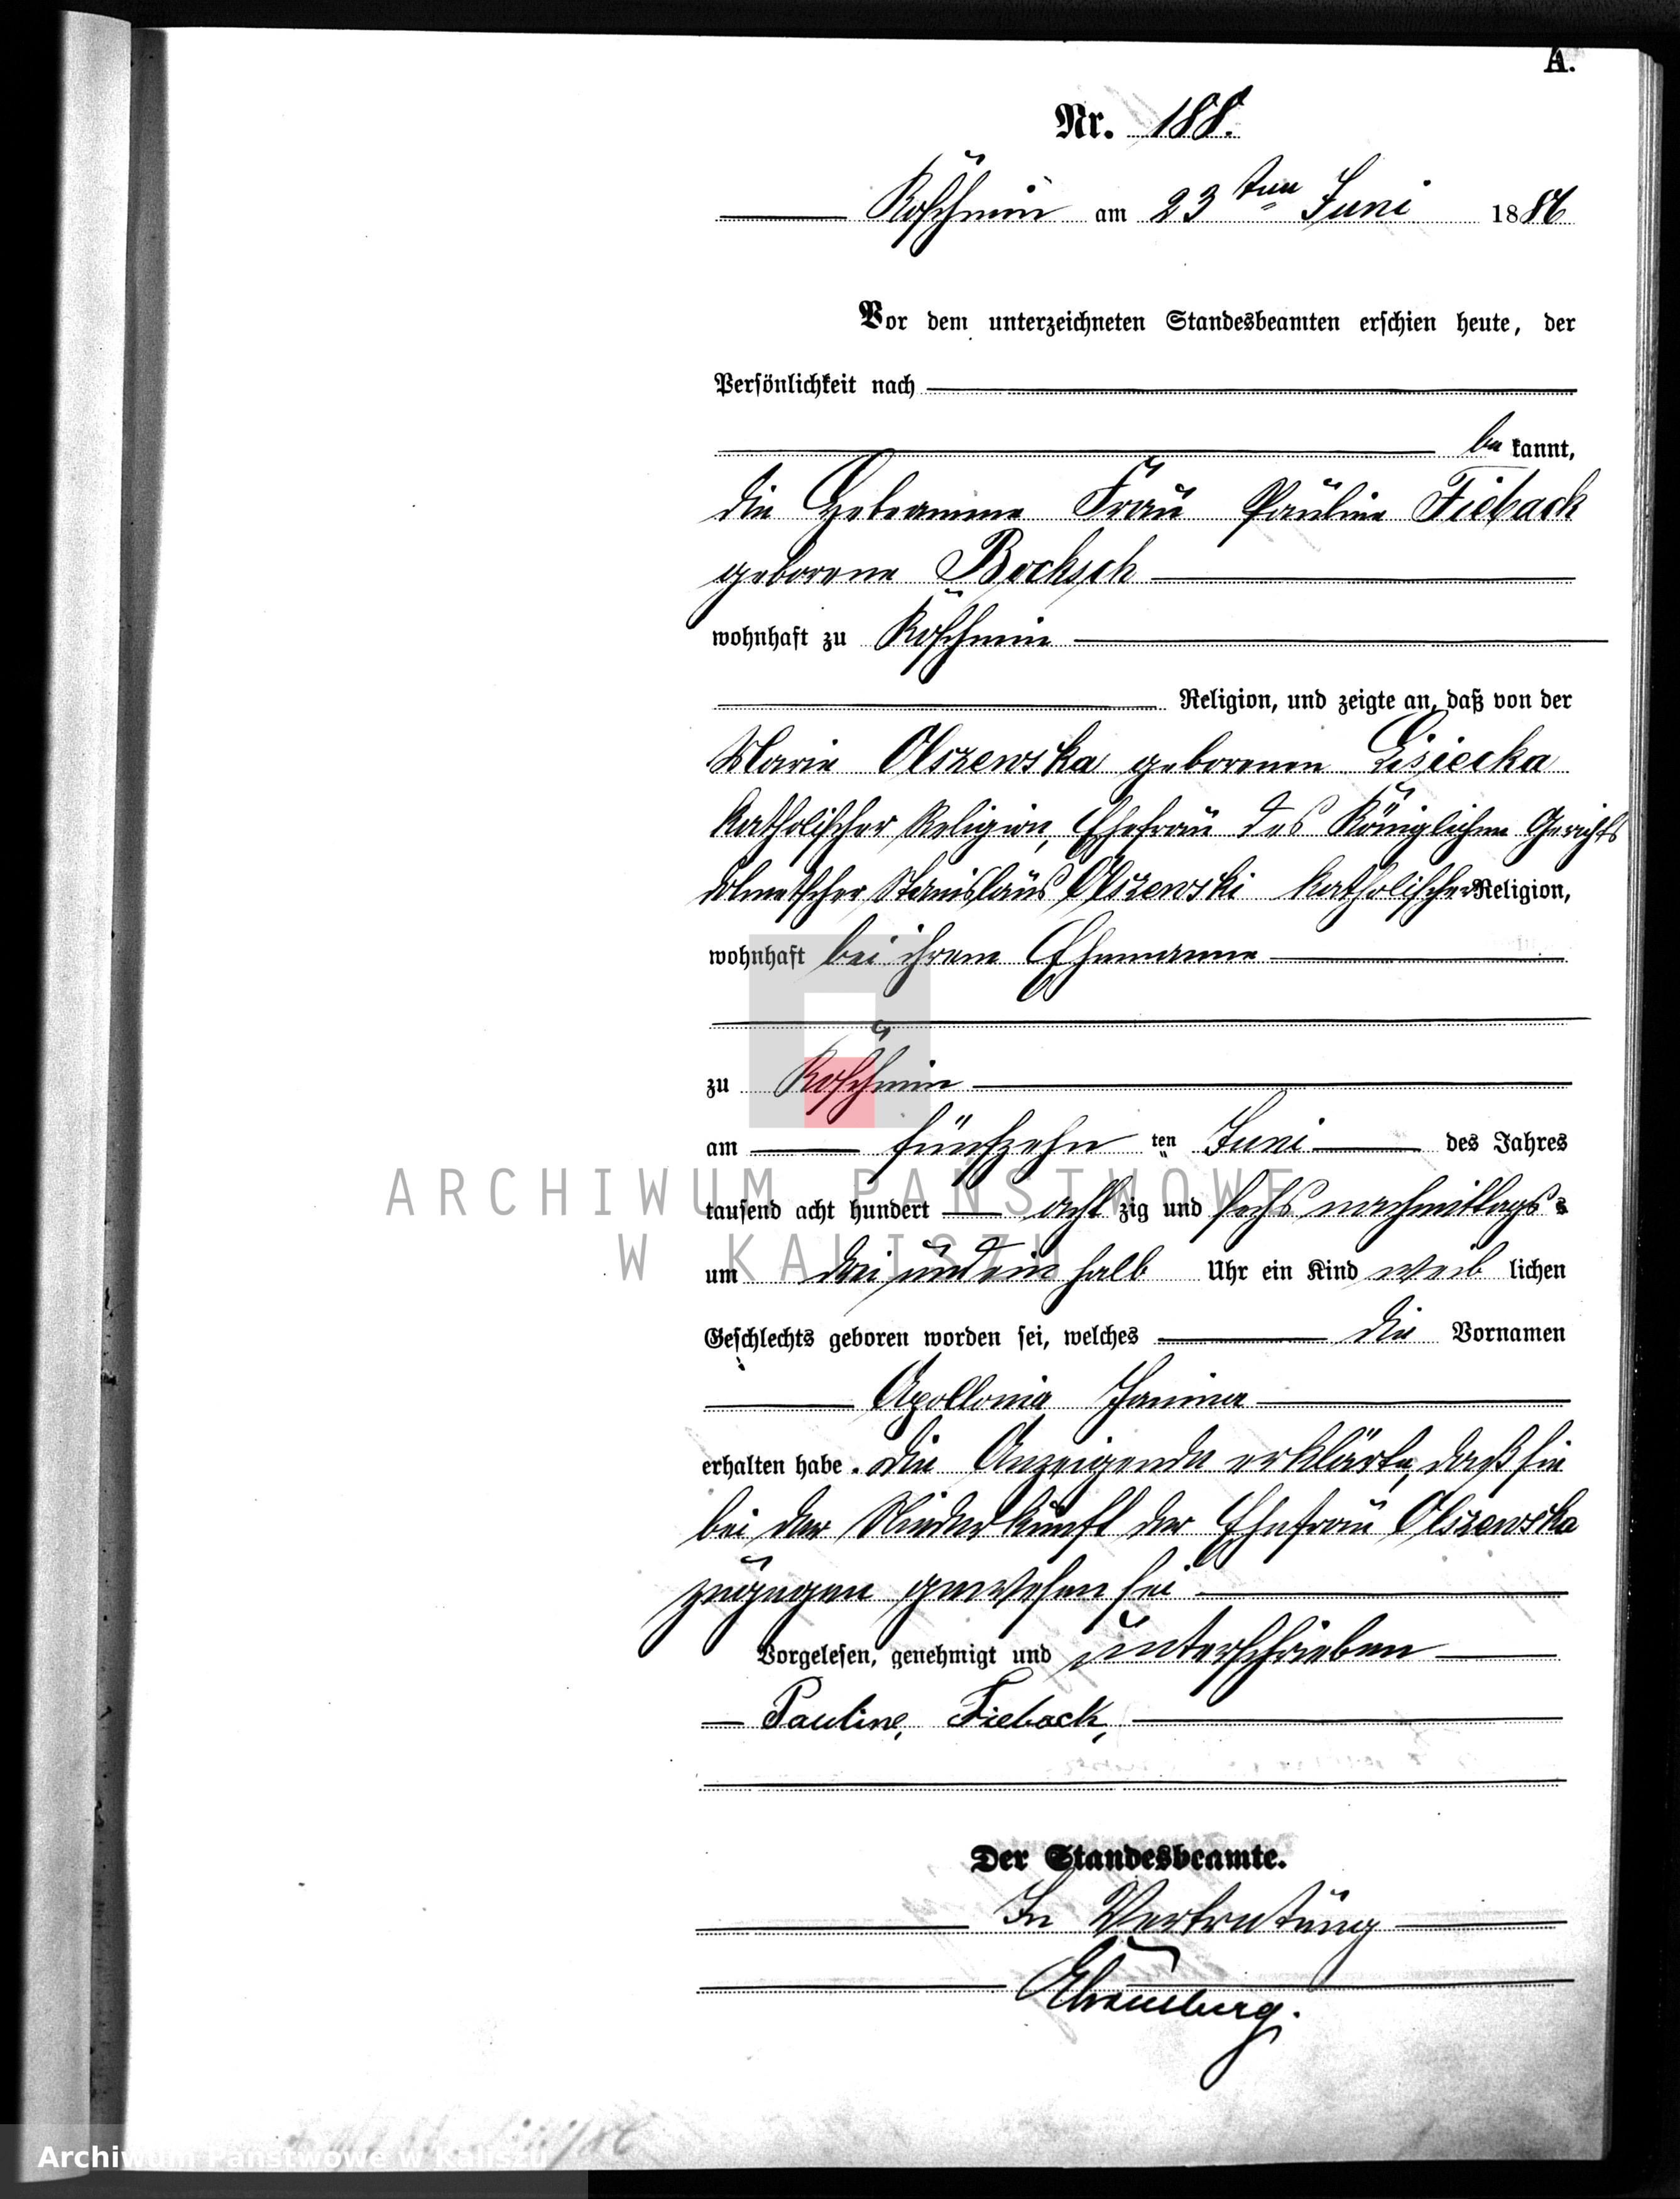 A.
Nr. 188.
Koschmin am 23 ten Juni 1886
Vor dem unterzeichneten Standesbeamten erschien heute, der
Persönlichkeit nach
be kannt,
die Hebeamme Frau Pauline Fieback
geborene Bocksch
wohnhaft zu Koschmin
Religion, und zeigte an, daß von der
Marie Olszewska geborenen Lisiecka
katholischer Religion, Ehefrau des Königlichen Gerichts
dolmetscher Stanislaus Olszewski katholischer Religion,
wohnhaft bei ihrem Ehemanne
zu Koschmin
am fünfzehn ten Juni des Jahres
ARCHIWUM PAŃSTWOWE
tausend acht hundert acht zig und sechs nachmittags
W KALISZU
um drei und ein halb Uhr ein Kind weib lichen
Geschlechts geboren worden sei, welches die Vornamen
Apollonia Janina
erhalten habe. Die Anzeigende erklärte, daß sie
bei der Niederkunft der Ehefrau Olszewska
zugegen gewesen sei
Vorgelesen, genehmigt und unterschrieben
Pauline, Fieback,
Der Standesbeamte.
In Vertretung
Archiwum Państwowe w Kaliszu